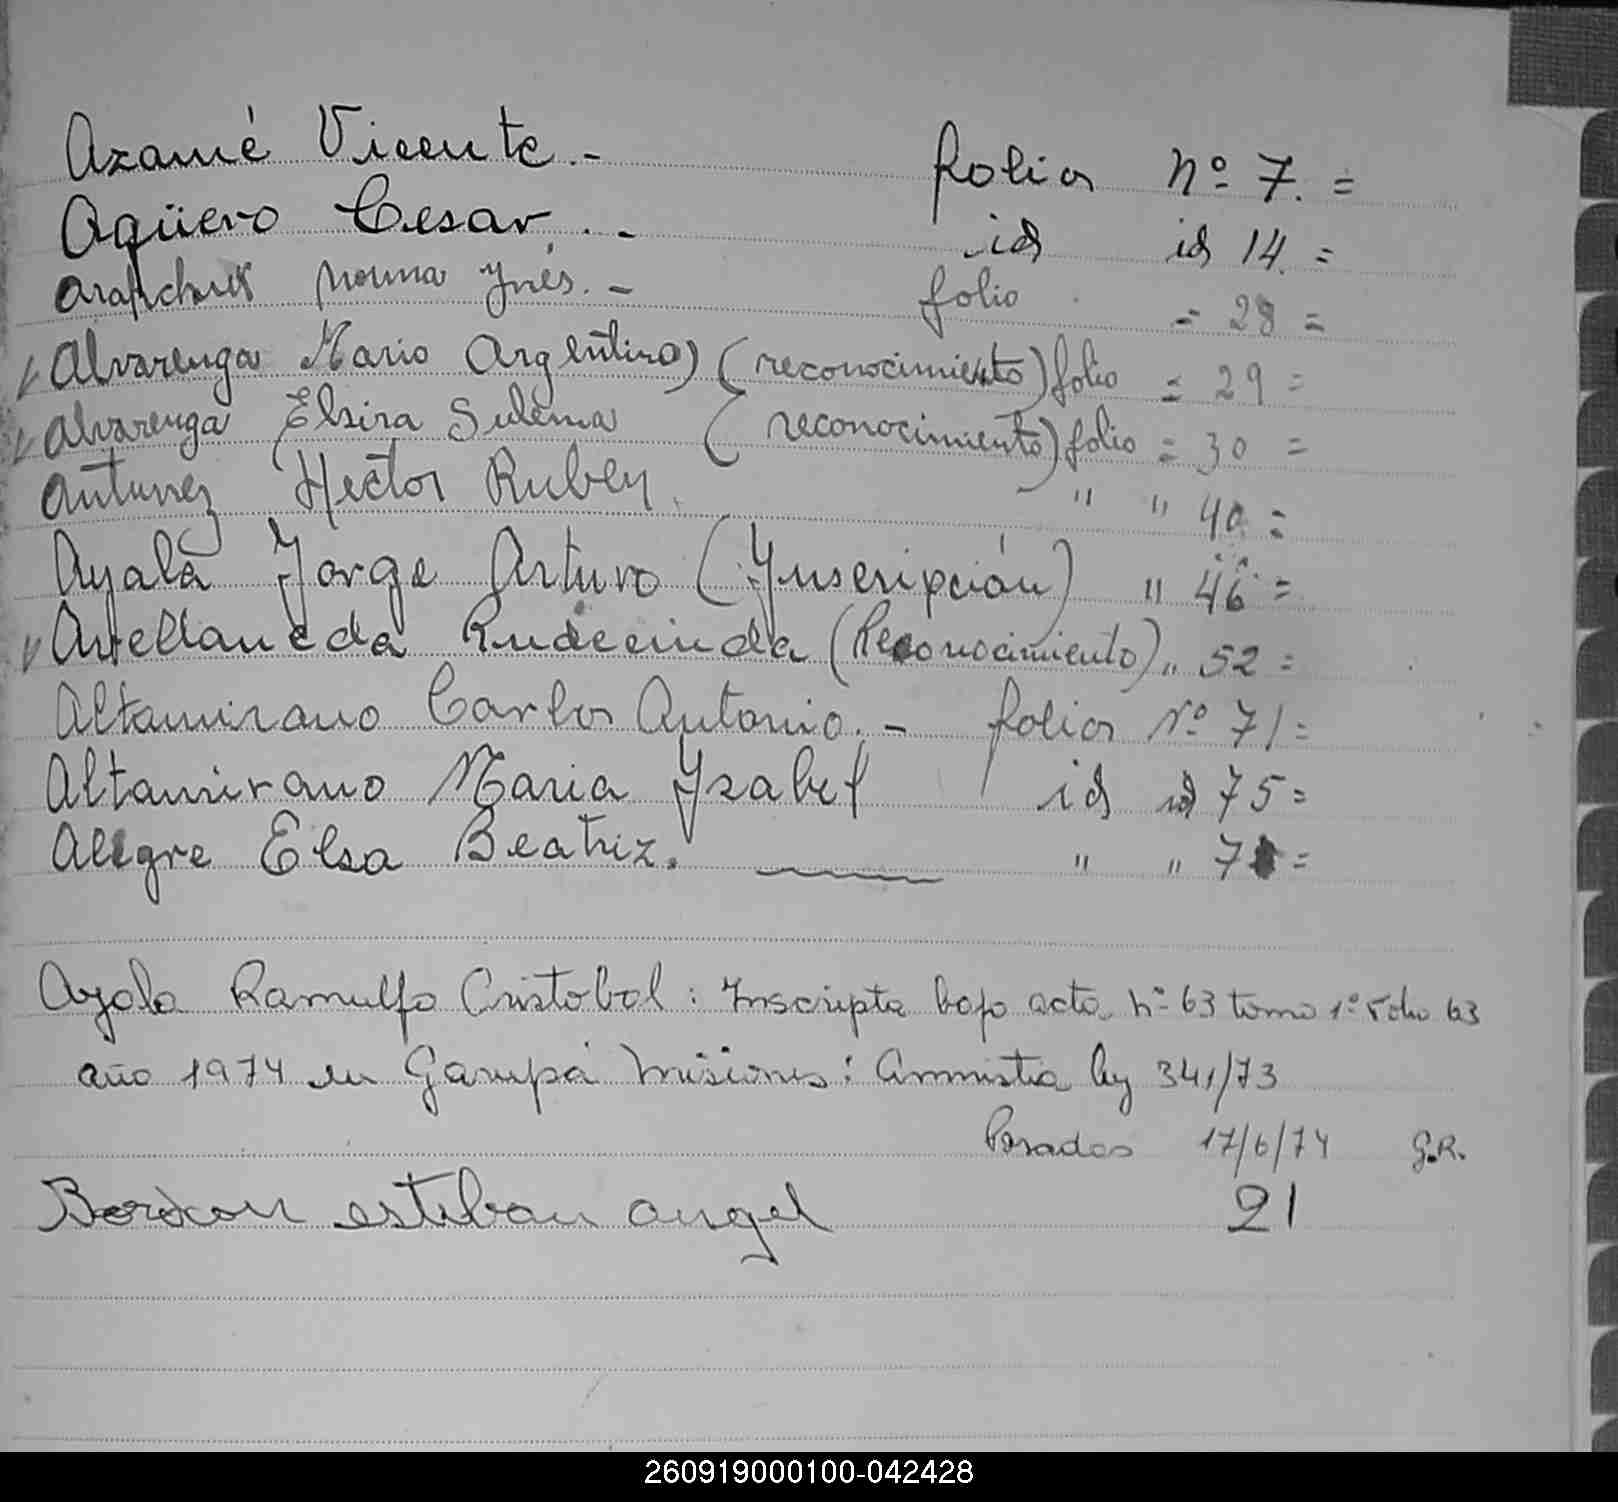 Azamé Vicente.- folio nº 7.=
Agüero Cesar. .- id id 14.=
norma Ynés.- folio = 28 =
Alvarenga Mario Argentino) (reconocimiento) folio = 29 =
Alvarenga Elvira Sulema (reconocimiento) folio = 30 =
Antunez Hector Ruben. " " 40 =
Ayala Jorge Arturo (Ynscripción) " 46 =
Avellaneda Rudecinda (Reconocimiento) " 52 =
Altamirano Carlos Antonio.- folio Nº 71=
Altamirano Maria Yzabel id id 75=
Alegre Elsa Beatriz. " " 7 =
Ayala Ramulfo Cristobal : Inscripta bajo acta nº 63 tomo 1º folio 63
año 1974 en Garupá Misiones : Amnistia ley 341/73
Posadas 17/6/74 G.R.
esteban angel 21
260919000100-042428